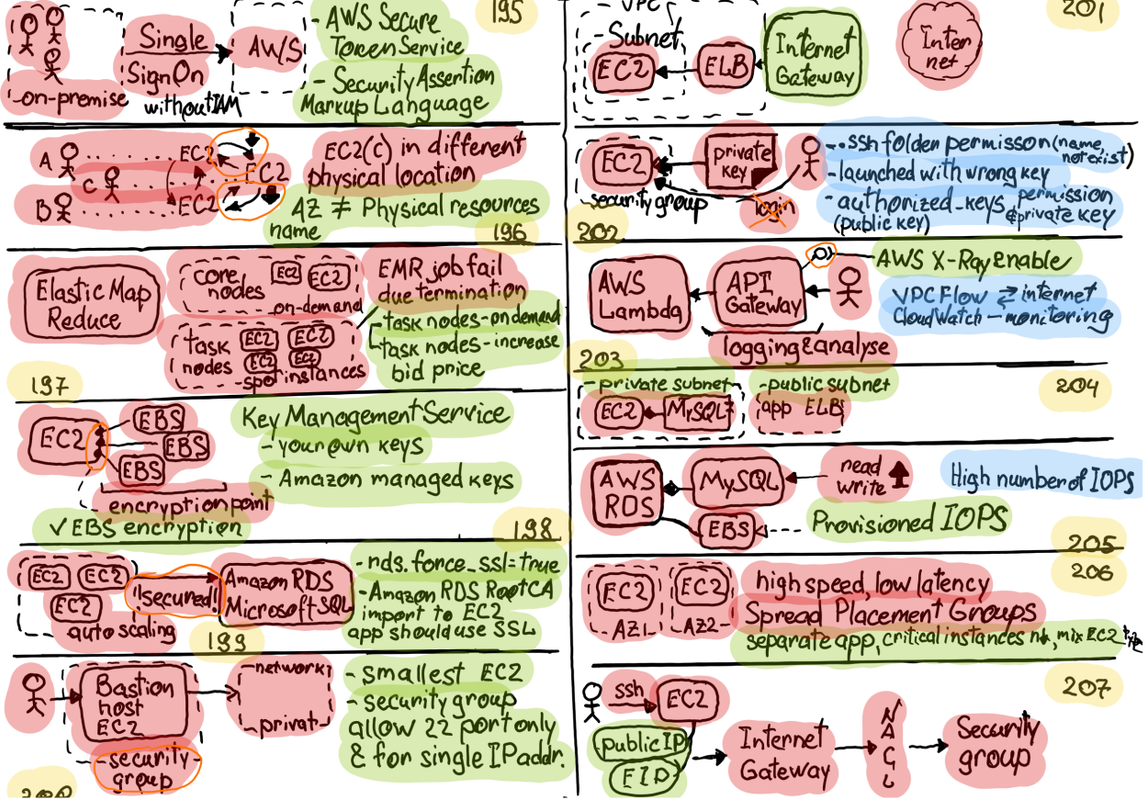 195
Single
SignOn
withoutIAM
on-premise
AWS
- AWS Secure
Token Service
- Security Assertion
Markup Language
A
EC2
C
EC2
B
EC2
EC2(C) in different
physical location
AZ ≠ Physical resources
name
196
Elastic Map
Reduce
core
nodes
EC2
EC2
on-demand
task
nodes
EC2
EC2
EC2
EC2
- spot instances
EMR job fail
due termination
- task nodes - on demand
- task nodes - increase
bid price
197
EC2
EBS
EBS
EBS
encryption point
✓ EBS encryption
Key Management Service
- your own keys
- Amazon managed keys
198
EC2
EC2
EC2
auto scaling
!secured!
Amazon RDS
Microsoft SQL
- rds.force_ssl=true
- Amazon RDS RootCA
import to EC2
app should use SSL
199
Bastion
host
EC2
- security -
group
network
privat
- smallest EC2
- security group
allow 22 port only
& for single IP addr.
VPC
- Subnet
EC2
ELB
Internet
Gateway
Inter
net
201
EC2
security group
private
key
login
- .ssh folder permisson (name,
not exist)
- launched with wrong key
- authorized_keys permission
(public key) & private key
202
AWS
Lambda
API
Gateway
logging & analyse
AWS X-Ray enable
VPC Flow ⇄ internet
CloudWatch - monitoring
203
- private subnet
EC2
MySQL
- public subnet
app ELB
204
AWS
RDS
MySQL
EBS
read
write
High number of IOPS
Provisioned IOPS
205
206
EC2
AZ1
EC2
AZ2
high speed, low latency
Spread Placement Groups
separate app, critical instances
mix EC2
207
ssh
EC2
public IP
EIP
Internet
Gateway
NACL
Security
group